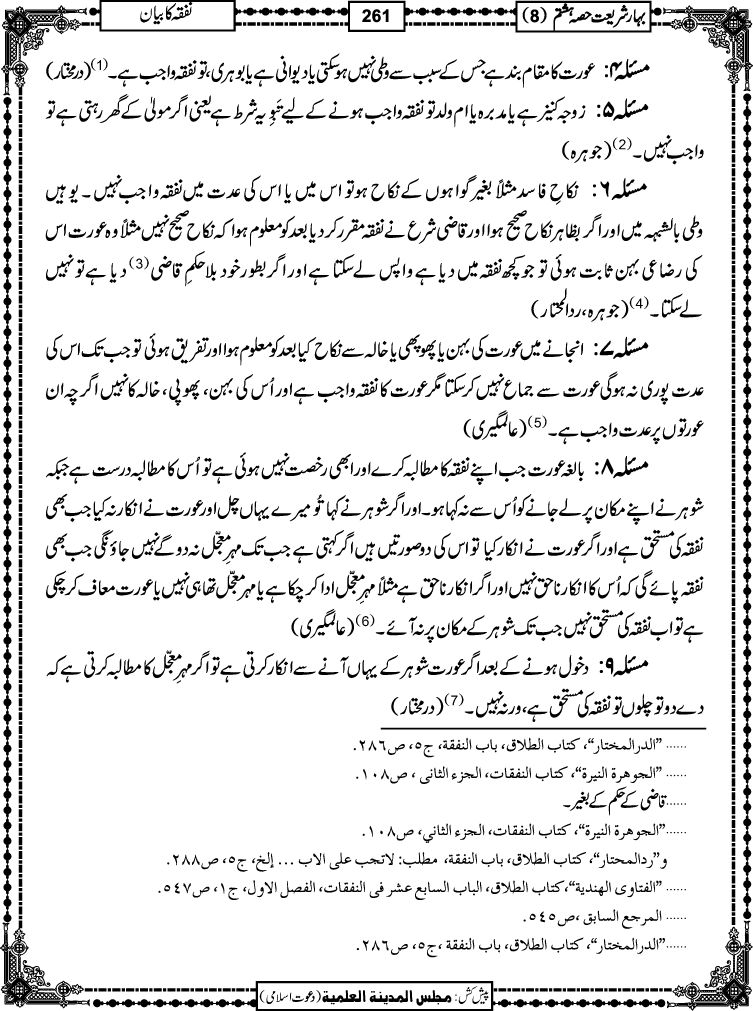 بہارِ شریعت حصہ ہشتم (8)
261
نفقہ کا بیان
مسئلہ ۴: عورت کا مقام بند ہے جس کے سبب سے وطی نہیں ہوسکتی یا دیوانی ہے یا بوہری، تو نفقہ واجب ہے۔(1) (درمختار)
مسئلہ ۵: زوجہ کنیز ہے یا مدبرہ یا ام ولد تو نفقہ واجب ہونے کے لیے تَبْوِیہ شرط ہے یعنی اگر مولیٰ کے گھر رہتی ہے تو
واجب نہیں۔(2) (جوہرہ)
مسئلہ ۶: نکاحِ فاسد مثلاً بغیر گواہوں کے نکاح ہو تو اس میں یا اس کی عدت میں نفقہ واجب نہیں۔ یو ہیں
وطی بالشبہہ میں اور اگر بظاہر نکاح صحیح ہوا اور قاضی شرع نے نفقہ مقرر کر دیا بعد کو معلوم ہوا کہ نکاح صحیح نہیں مثلاً وہ عورت اس
کی رضاعی بہن ثابت ہوئی تو جو کچھ نفقہ میں دیا ہے واپس لے سکتا ہے اور اگر بطور خود بلا حکمِ قاضی(3) دیا ہے تو نہیں
لے سکتا۔(4) (جوہرہ، ردالمحتار)
مسئلہ ۷: انجانے میں عورت کی بہن یا پھوپھی یا خالہ سے نکاح کیا بعد کو معلوم ہوا اور تفریق ہوئی تو جب تک اس کی
عدت پوری نہ ہوگی عورت سے جماع نہیں کرسکتا مگر عورت کا نفقہ واجب ہے اور اُس کی بہن، پھوپی، خالہ کا نہیں اگرچہ ان
عورتوں پر عدت واجب ہے۔(5) (عالمگیری)
مسئلہ ۸: بالغہ عورت جب اپنے نفقہ کا مطالبہ کرے اور ابھی رخصت نہیں ہوئی ہے تو اُس کا مطالبہ درست ہے جبکہ
شوہر نے اپنے مکان پر لے جانے کو اُس سے نہ کہا ہو۔ اور اگر شوہر نے کہا تُو میرے یہاں چل اور عورت نے انکار نہ کیا جب بھی
نفقہ کی مستحق ہے اور اگر عورت نے انکار کیا تو اس کی دو صورتیں ہیں اگر کہتی ہے جب تک مہرِ معجّل نہ دوگے نہیں جاؤنگی جب بھی
نفقہ پائے گی کہ اُس کا انکار ناحق نہیں اور اگر انکار ناحق ہے مثلاً مہرِ معجّل ادا کر چکا ہے یا مہر معجّل تھا ہی نہیں یا عورت معاف کر چکی
ہے تو اب نفقہ کی مستحق نہیں جب تک شوہر کے مکان پر نہ آئے۔(6) (عالمگیری)
مسئلہ ۹: دخول ہونے کے بعد اگر عورت شوہر کے یہاں آنے سے انکار کرتی ہے تو اگر مہرِ معجّل کا مطالبہ کرتی ہے کہ
دے دو تو چلوں تو نفقہ کی مستحق ہے، ورنہ نہیں۔(7) (درمختار)
...... ”الدرالمختار“، کتاب الطلاق، باب النفقة، ج٥، ص٢٨٦.
...... ”الجوهرة النيرة“، کتاب النفقات، الجزء الثانی ، ص١٠٨.
...... قاضی کے حکم کے بغیر۔
...... ”الجوهرة النيرة“، کتاب النفقات، الجزء الثاني، ص١٠٨.
و”ردالمحتار“، کتاب الطلاق، باب النفقة، مطلب: لاتجب علی الاب ... إلخ، ج٥، ص٢٨٨.
...... ”الفتاوی الهندية“، کتاب الطلاق، الباب السابع عشر فی النفقات، الفصل الاول، ج١، ص٥٤٧.
...... المرجع السابق ،ص٥٤٥.
...... ”الدرالمختار“، کتاب الطلاق، باب النفقة ،ج٥، ص٢٨٦.
پیش کش: مجلس المدینة العلمیة (دعوتِ اسلامی)